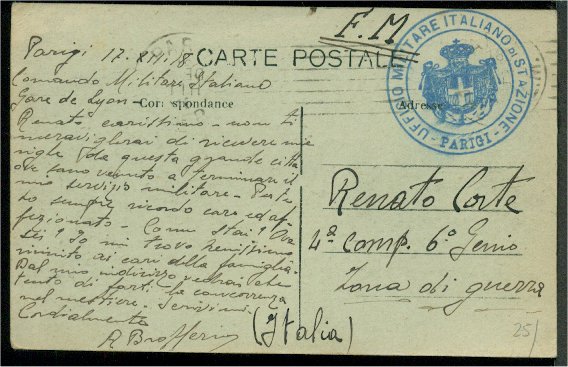 F. M
UFFINO MILITARE ITALIANO DI STAZIONE
- PARIGI -
CARTE POSTALE
Correspondance
Adresse
Parigi 17. XII. 18
Comando Militare Italiano
Gare de Lyon -
Renato carissimo - non ti
meraviglierai di ricevere mie
righe da questa grande città
ove sono venuto a terminare il
mio servizio militare -
sempre ricordo caro ed af-
fezionato - Come stai? Ove
sei? Io mi trovo benissimo
ai cari della famiglia -
Dal mio indirizzo vedrai che
di farti la concorrenza
nel mestiere - Scrivimi -
Cordialmente
A
Renato Corte
4ª comp. 6º Genio
Zona di guerra
(Italia)
25/